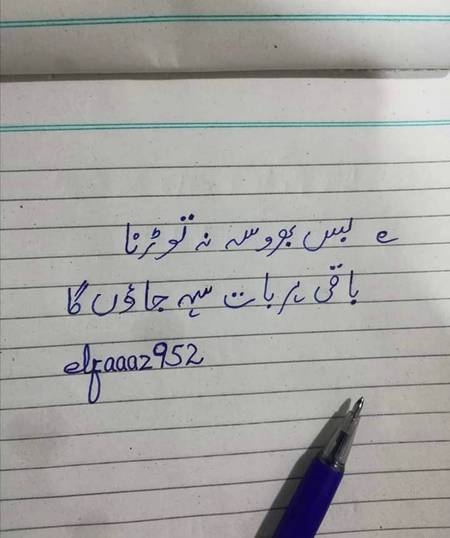 بس بھروسہ نہ توڑنا
باقی ہر بات سہہ جاؤں گا
elfaaaz952